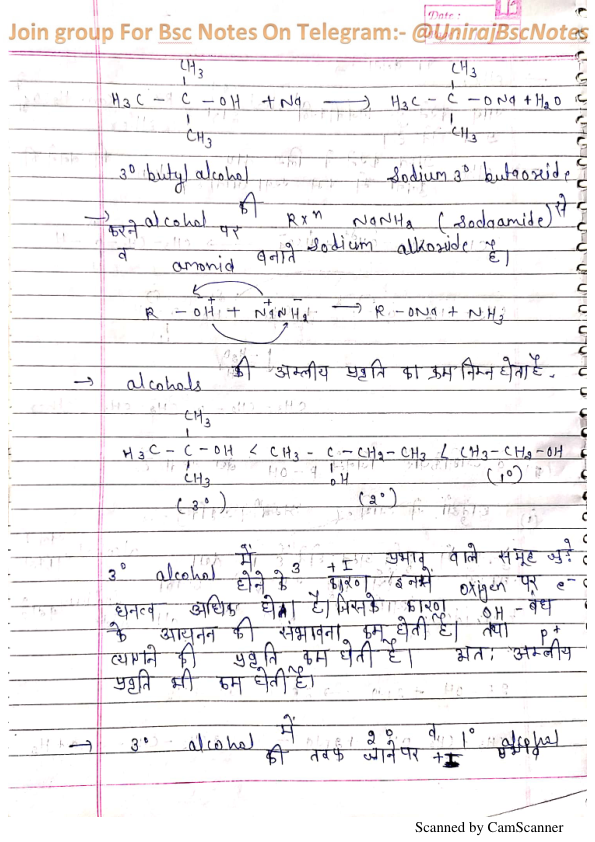 Date :
Join group For Bsc Notes On Telegram:- @UnirajBscNotes
CH3 CH3
H3C - C - OH + Na → H3C - C - ONa + H2O
CH3 CH3
3° butyl alcohol Sodium 3° butaoxide
→ alcohol की Rxn NaNH2 (Sodaamide) से
करने पर Sodium alkoxide
व amonid बनाते है।
R - OH + NaNH2 → R - ONa + NH3
→ alcohols की अम्लीय प्रवृति का क्रम निम्न होता है -
CH3
H3C - C - OH < CH3 - C - CH2 - CH3 < CH3 - CH2 - OH
CH3 OH (1°)
(3°) (2°)
3° alcohol में 3 +I प्रभाव वाले समूह जुड़े
होने के कारण इनमें oxigen पर e-
घनत्व अधिक होता है। जिसके कारण OH - बंध
के आयनन की संभावना कम होती है। तथा p+
त्यागने की प्रवृति कम होती है। अतः अम्लीय
प्रवृति भी कम होती है।
→ 3° alcohol में 2° व 1° alcohol
की तरफ जाने पर +I प्रभाव
Scanned by CamScanner